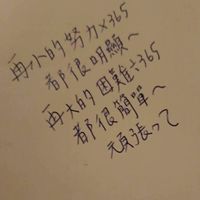 再小的努力×365
都很明顯~
再大的困難÷365
都很簡單~
頑張って